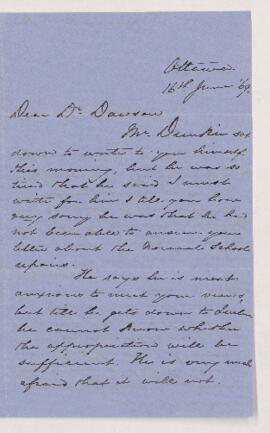 Ottawa
16th June '69.
Dear Dr Dawson
Mr. Dunkin sat
down to write to you himself
this morning, but he was so
tired that he said I must
write for him & tell you how
very sorry he was that he had
not been able to answer your
letter about the Normal School
repairs.
He says he is most
anxious to meet your views,
but till he gets down to
he cannot know whether
the appropriation will be
sufficient. He is very much
afraid that it will not.